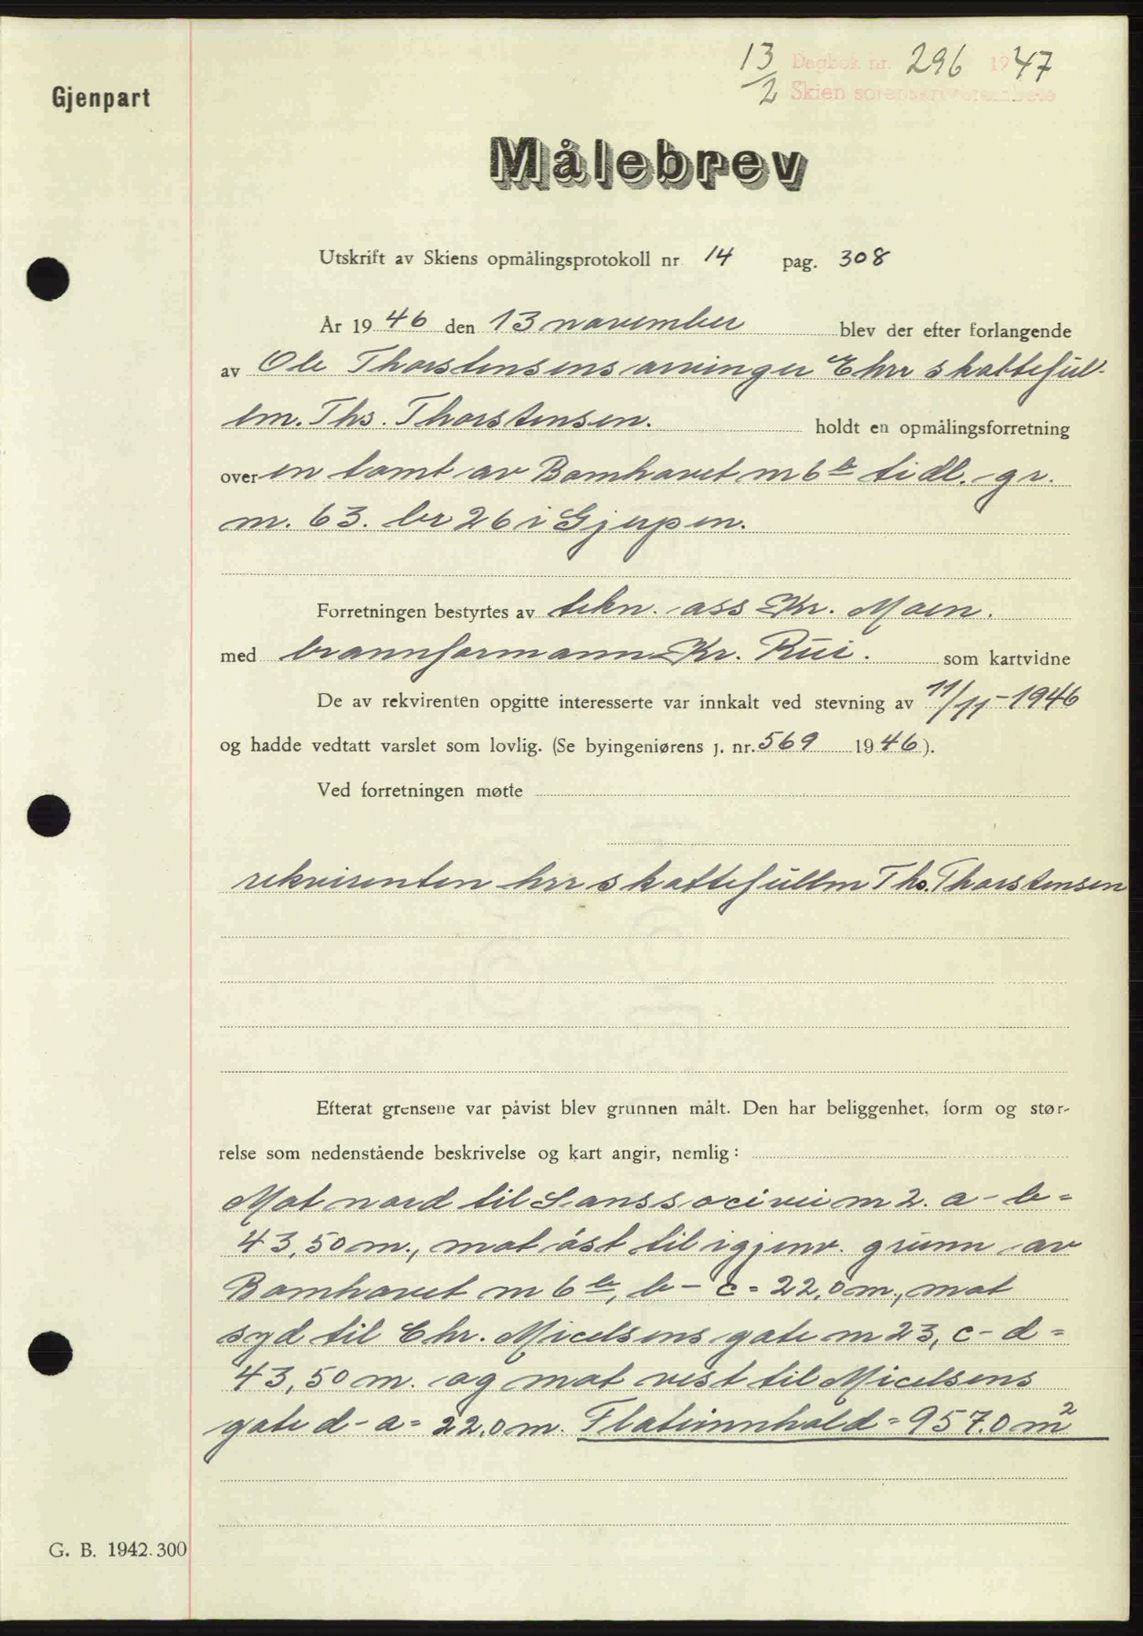 13/2 Dagbok nr. 296 1947
Skien sorenskriverembete
Gjenpart
Målebrev
Utskrift av Skiens opmålingsprotokoll nr 14 pag. 308
År 1946 den 13 november blev der efter forlangende
av Ole Thorstensens arvinger v hrr skattefull-
m. Ths. Thorstensen. holdt en opmålingsforretning
over en tomt av Bamhavet nr 6 b tidl. gr.
nr. 63. br 26 i Gjerpen.
Forretningen bestyrtes av tekn. ass Kr. Moen.
med brannformann Kr. Rui. som kartvidne
De av rekvirenten opgitte interesserte var innkalt ved stevning av 11/11-1946
og hadde vedtatt varslet som lovlig. (Se byingeniørens j. nr. 569 1946).
Ved forretningen møtte
rekvirenten hrr skattefullm Ths. Thorstensen
Efterat grensene var påvist blev grunnen målt. Den har beliggenhet, form og stør-
relse som nedenstående beskrivelse og kart angir, nemlig:
Mot nord til nr 2. a - b =
43,50 m., mot øst til igjenv. grunn av
Bamhavet nr 6 b, b - c = 22,0 m., mot
syd til Chr. Micelsens gate nr 23, c - d =
43,50 m. og mot vest til Micelsens
gate d - a = 22,0 m. Flateinnhold = 957.0 m2
G. B. 1942.300